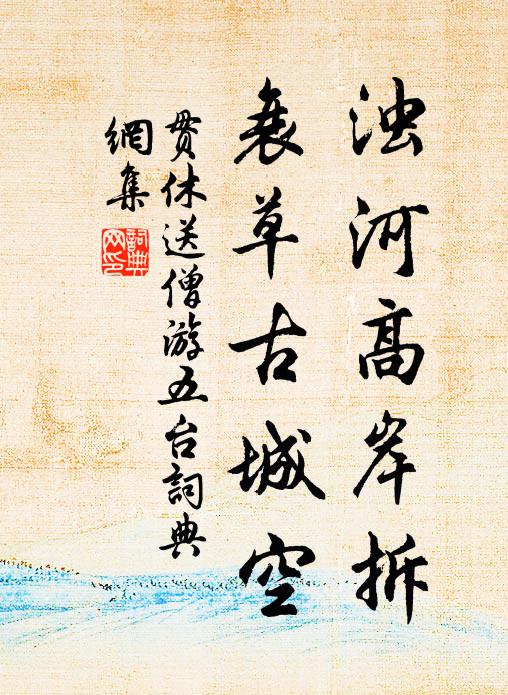 浊河高岸拆
衰草古城空
贯休送僧游五台詞典
網集
詞典
网印